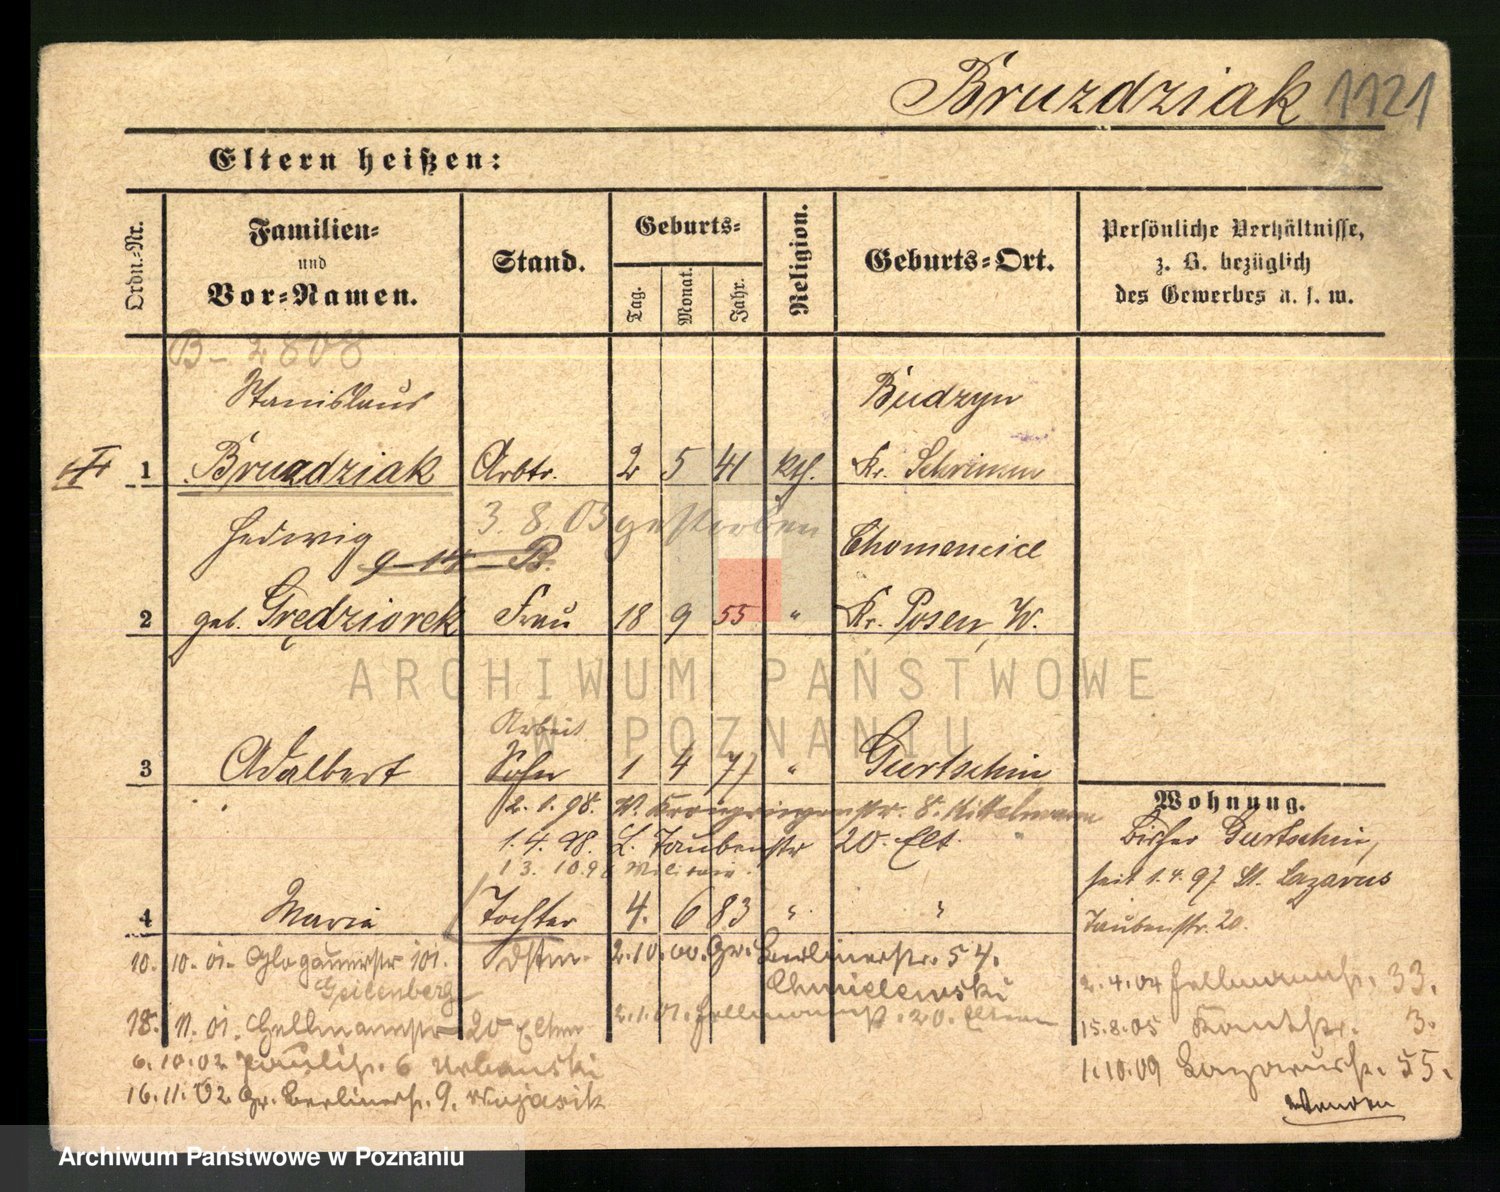 Bruzdziak 1121
Eltern heißen:
Ordn.-Nr.
Familien-
und
Vor-Namen.
Stand.
Geburts-
Tag.
Monat.
Jahr.
Religion.
Geburts-Ort.
Persönliche Verhältnisse,
z. B. bezüglich
des Gewerbes u. s. w.
B - 2808
Stanislaus Budzyn
1 Bruzdziak Arbtr. 2 5 41 kth. Kr. Schrimm
3. 8. 03 gestorben
Hedwig Chomencice
9-14-B.
2 geb. Grędziorek Frau 18 9 55 " Kr. Posen, W.
ARCHIWUM PAŃSTWOWE
W POZNANIU
Arbeit
3 Adalbert Sohn 1 4 77 " Gurtschin
2. 1. 98. W. Kronprinzenstr. 8. Mittelmann
1. 4. 98. L. Taubenstr 20. Elt.
13. 10. Militair.
4 Marie Tochter 4. 6 83 " "
Wohnung.
Bisher Gurtschin,
seit 1.4.97 St. Lazarus
Taubenstr. 20.
10. 10. 01. Glogauerstr 101. Dstm. 2.10.00. Gr. Berlinerstr. 54.
Geienberg Chmielewski
18. 11. 01. Hellmannstr 20 Eltern 2.1.01. Hellmannst. 20. Eltern
6. 10. 02 6 Urbanski
16. 11. 02 Gr. Berlinerst. 9. Wujasik
2. 4. 04 Hellmannst. 33.
15. 8. 05 Kantstr. 3.
1. 10. 09 Lazarusst. 55.
Wenden
Archiwum Państwowe w Poznaniu